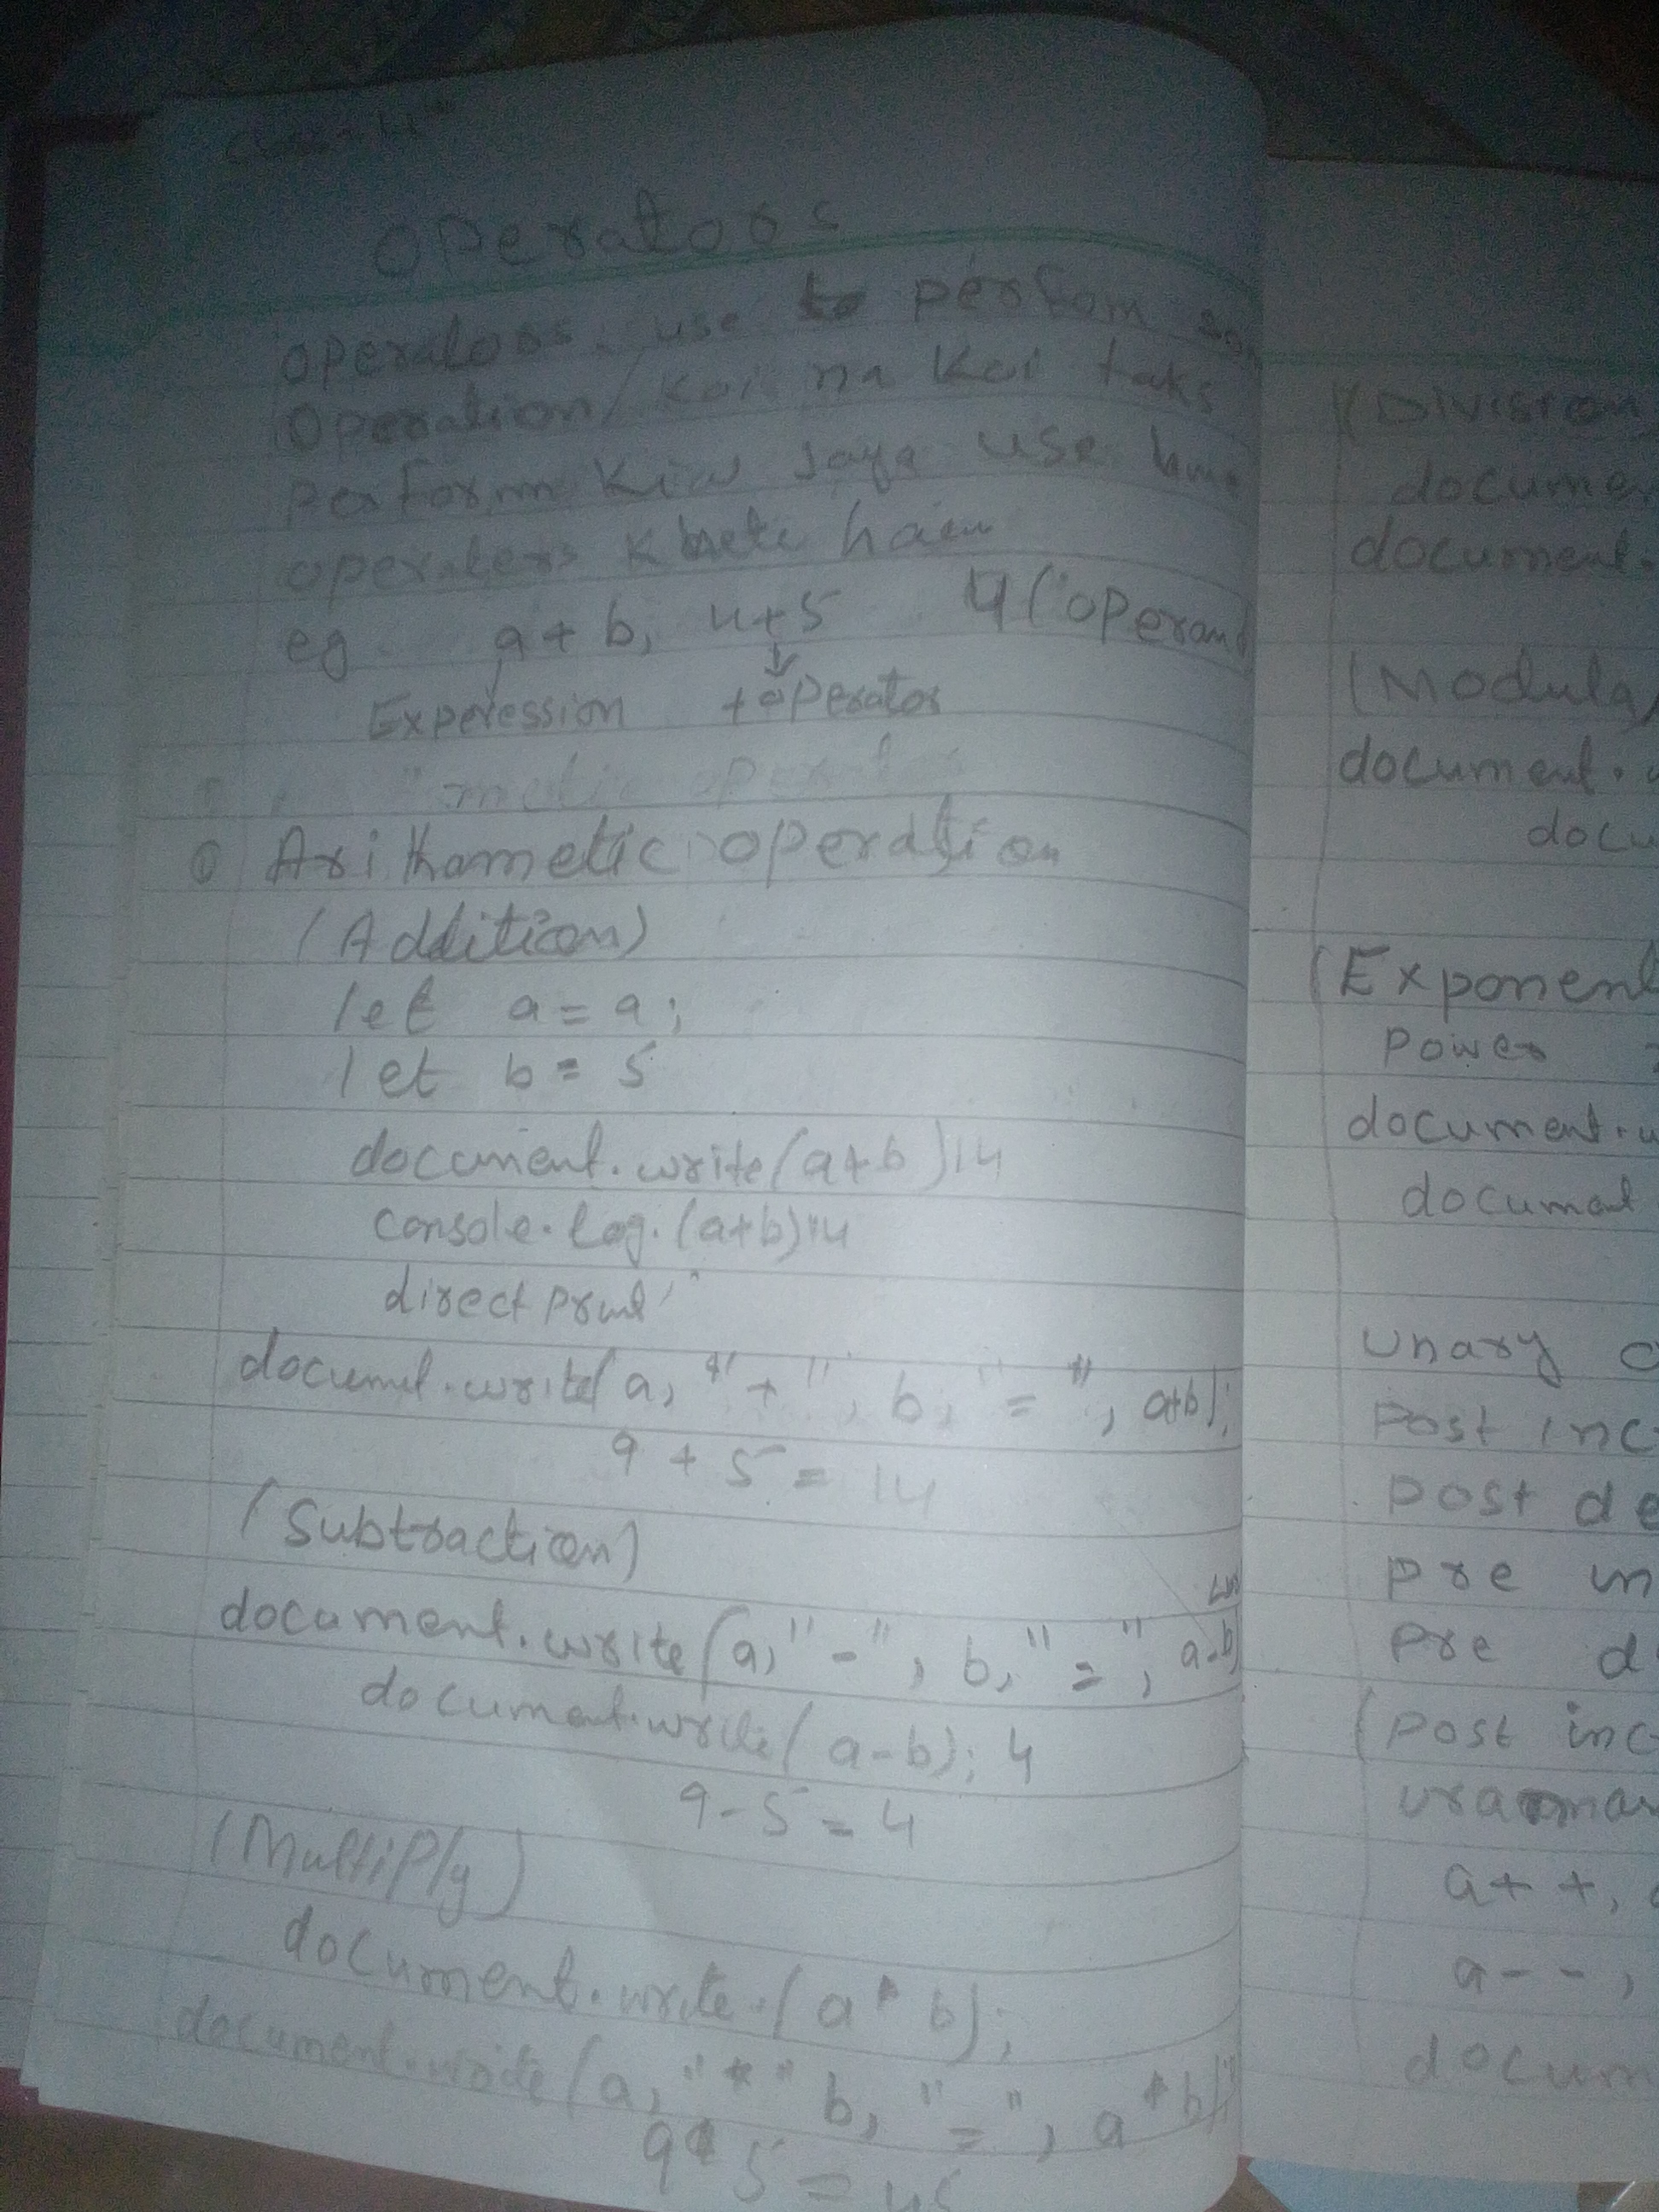 Operators
Operators use to perfom som
Operation/Koi na Koi taks
perform Kiw Jaya use hum
operators Khete hain
eg a+b, 4+5 4(operand
Experession +operator
metic operator
Arithametic operation
(Addition)
let a=9;
let b=5
document.write(a+b)14
console.log.(a+b)14
direct print
documet.write(a, "+", b, "=", a+b);
9+5=14
(Subtraction)
document.write(a,"-", b,"=", a-b)
document.write(a-b); 4
9-5=4
(Multiply)
document.write.(a*b);
document.write(a,"*" b,"=", a*b)
9*5=45
(Division
documen
document.
(Modula
document.
docu
(Exponent
Power
document.w
documat
Unary o
Post inc
post de
pre in
Pre d
(Post inc
a++,
a--,
docum